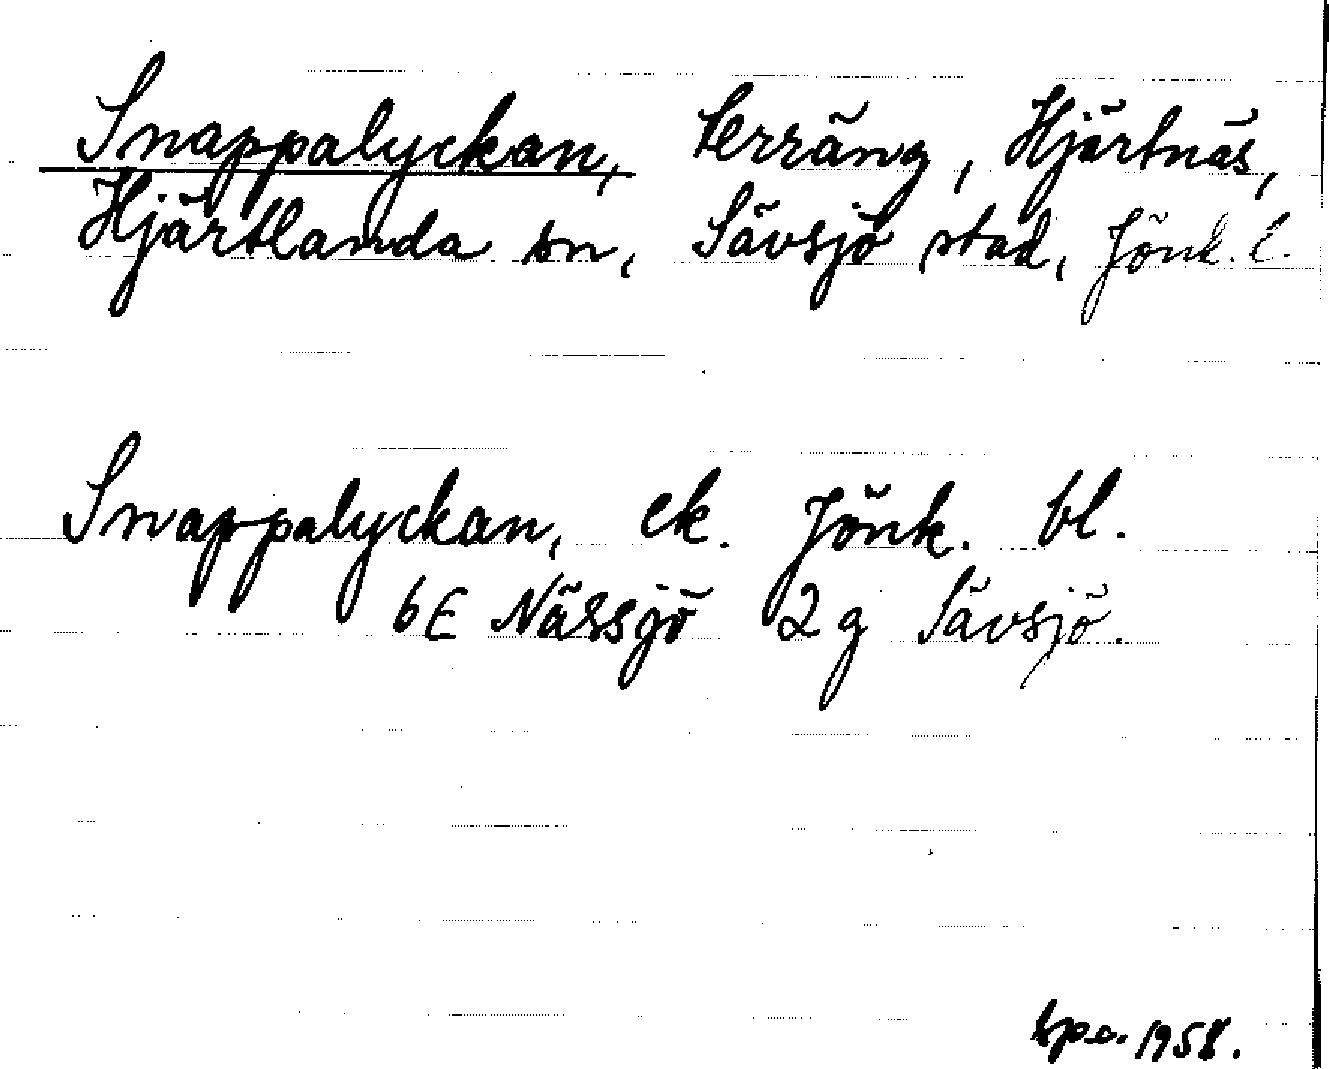 Snappalyckan, terräng, Hjärtnäs,
Hjärtlanda sn, Sävsjö stad, Jönk. l.
Snappalyckan, ek. Jönk. bl.
6E Nässjö 2g Sävsjö.
1958.